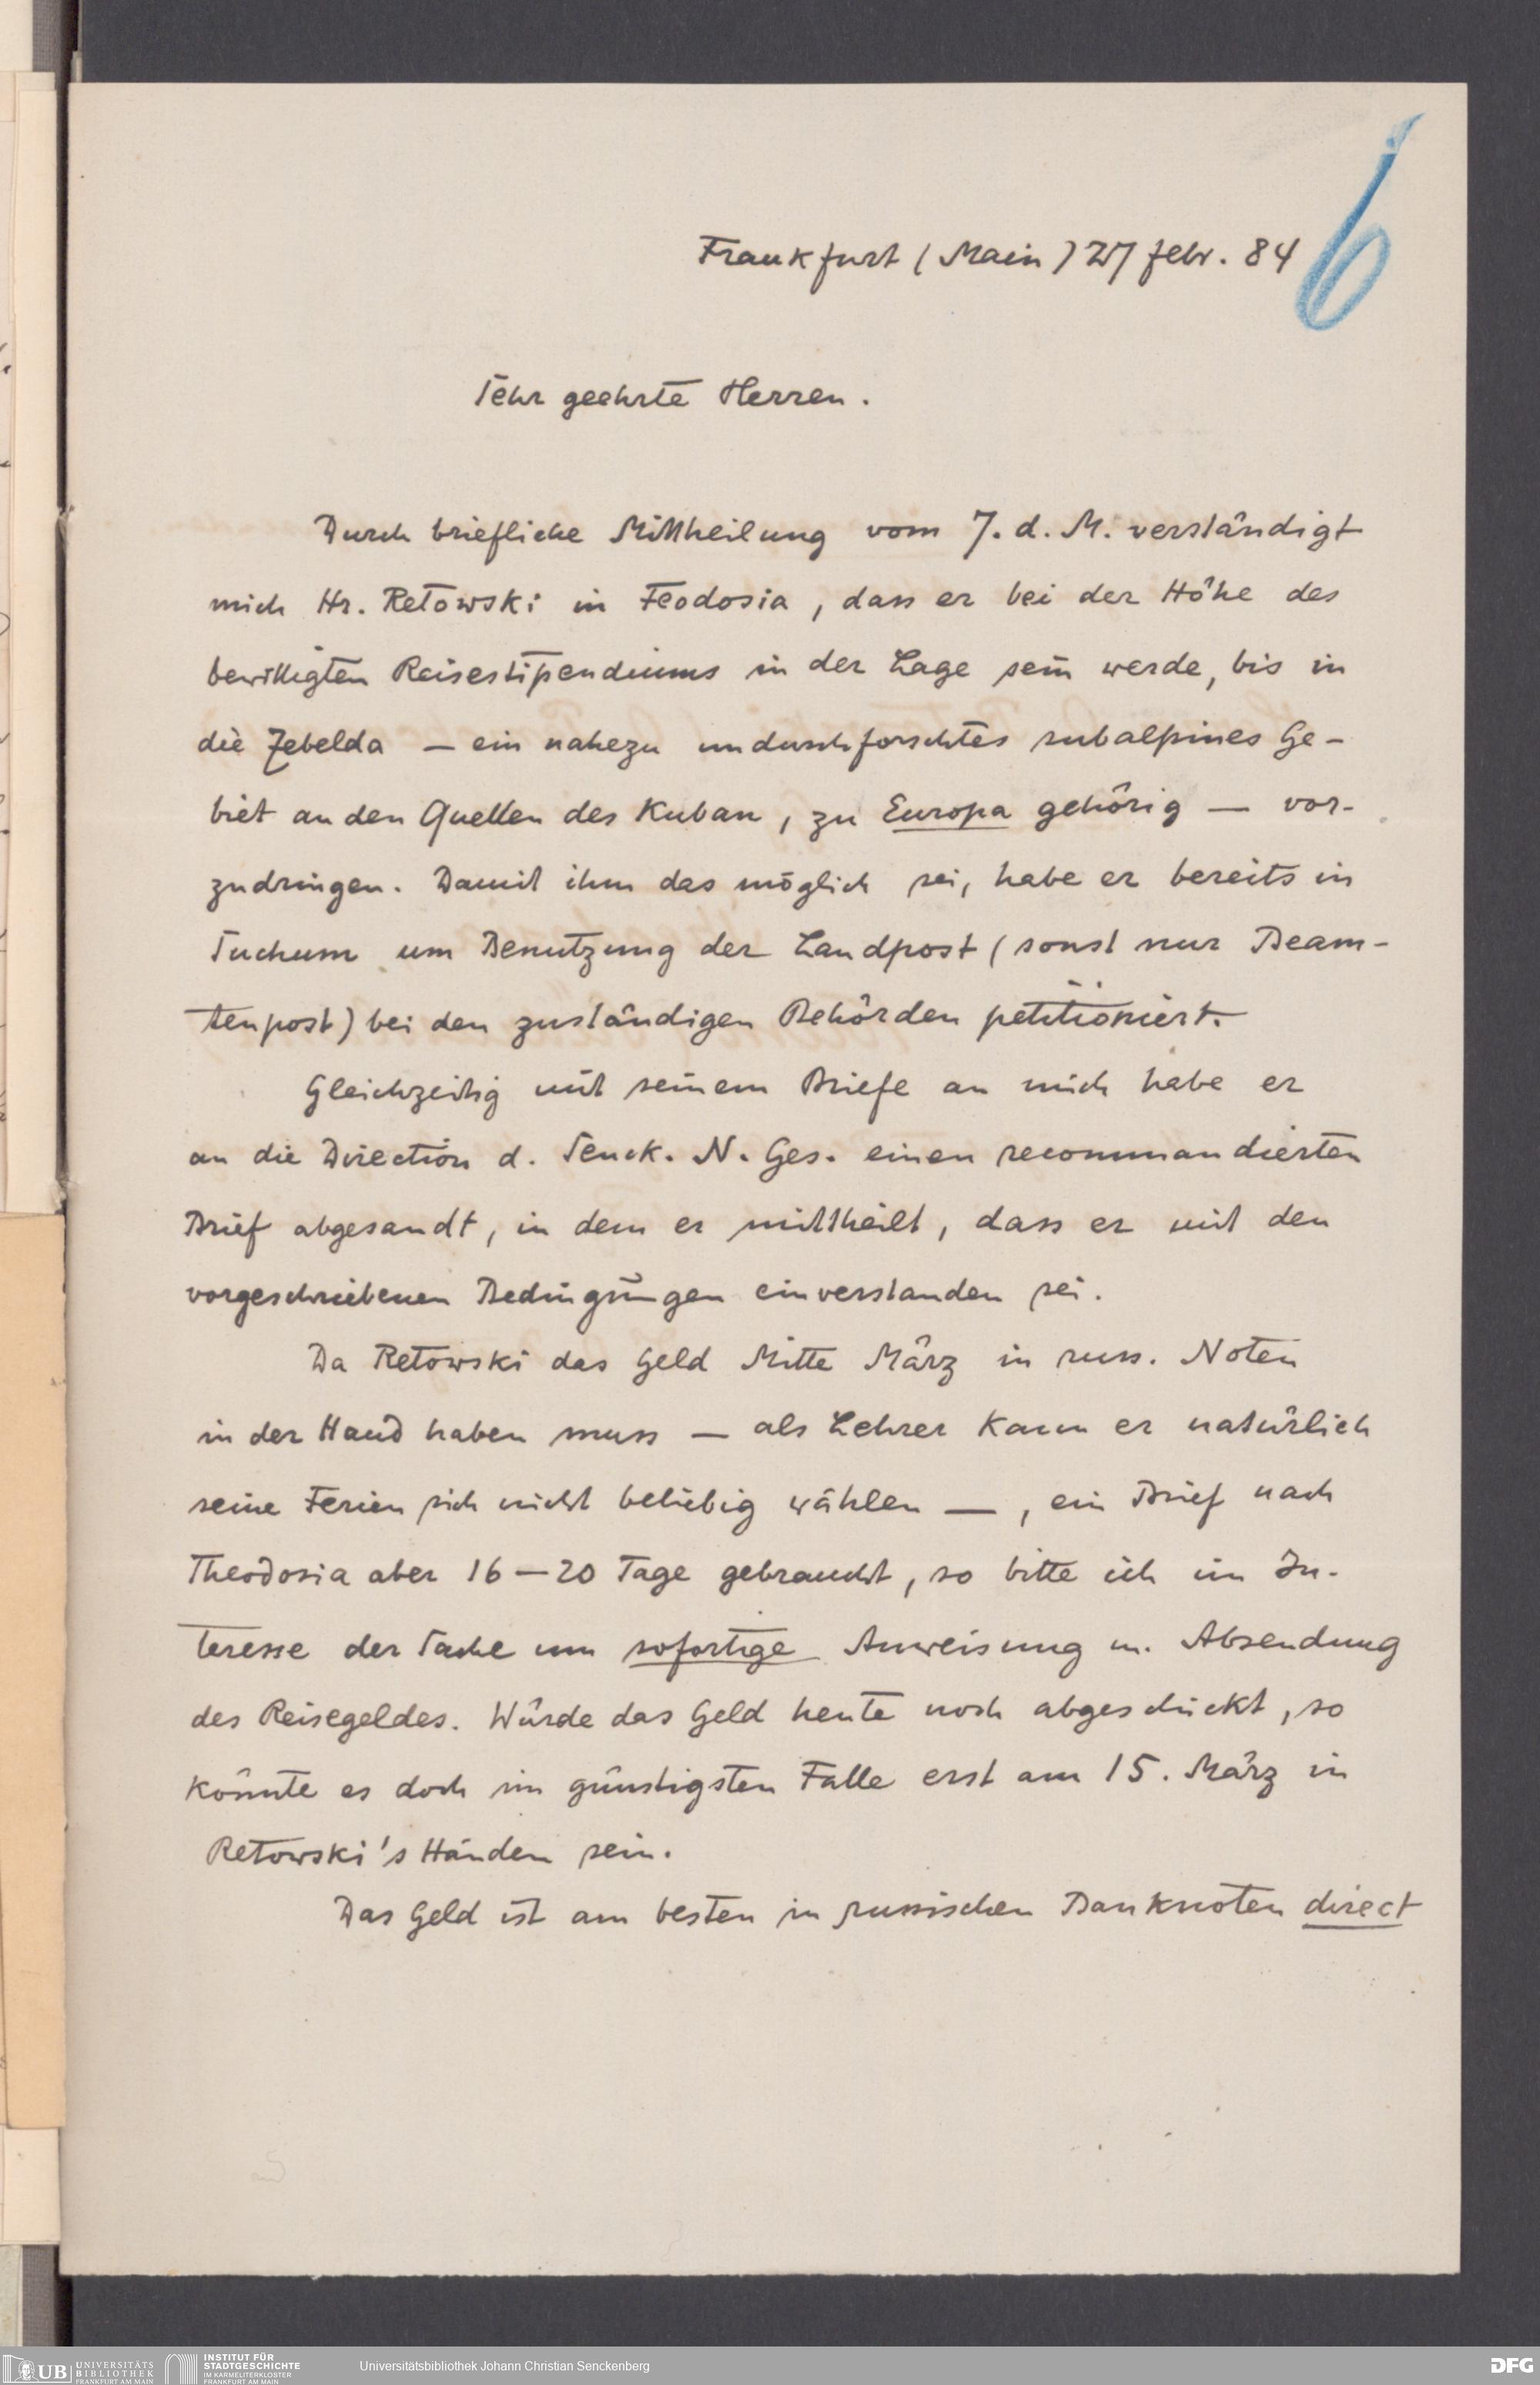 6
Frankfurt (Main) 27 Febr. 84
Sehr geehrte Herren.
Durch briefliche Mittheilung vom 7. d. M. verständigt
mich Hr. Retowski in Feodosia, dass er bei der Höhe des
bewilligten Reisestipendiums in der Lage sein werde, bis in
die Zebelda — ein nahezu undurchforschtes subalpines Ge-
biet an den Quellen des Kuban, zu Europa gehörig — vor-
zudringen. Damit ihm das möglich sei, habe er bereits in
Suchum um Benutzung der Landpost (sonst nur Beam-
tenpost) bei den zuständigen Behörden petitioniert.
Gleichzeitig mit seinem Briefe an mich habe er
an die Direction d. Senck. N. Ges. einen recommandierten
Brief abgesandt, in dem er mittheilt, dass er mit den
vorgeschriebenen Bedingungen einverstanden sei.
Da Retowski das Geld Mitte März in russ. Noten
in der Hand haben muss — als Lehrer kann er natürlich
seine Ferien sich nicht beliebig wählen —, ein Brief nach
Theodosia aber 16—20 Tage gebraucht, so bitte ich im In-
teresse der Sache um sofortige Anweisung u. Absendung
des Reisegeldes. Würde das Geld heute noch abgeschickt, so
könnte es doch im günstigsten Falle erst am 15. März in
Retowski's Händen sein.
Das Geld ist am besten in russischen Banknoten direct
UB UNIVERSITÄTS BIBLIOTHEK FRANKFURT AM MAIN
INSTITUT FÜR STADTGESCHICHTE IM KARMELITERKLOSTER FRANKFURT AM MAIN
Universitätsbibliothek Johann Christian Senckenberg
DFG